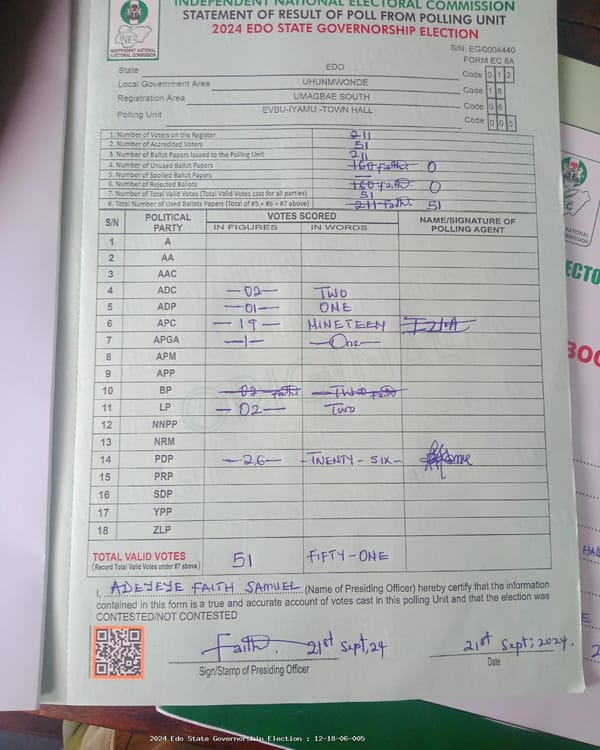 INDEPENDENT NATIONAL ELECTORAL COMMISSION
STATEMENT OF RESULT OF POLL FROM POLLING UNIT
2024 EDO STATE GOVERNORSHIP ELECTION
INEC
INDEPENDENT NATIONAL
ELECTORAL COMMISSION
S/N: EG/0004440
FORM EC 8A
State EDO Code 0 1 2
Local Government Area UHUNMWONDE Code 1 8
Registration Area UMAGBAE SOUTH Code 0 6
Polling Unit EVBU-IYAMU -TOWN HALL Code 0 0 5
1. Number of Voters on the Register 211
2. Number of Accredited Voters 51
3. Number of Ballot Papers Issued to the Polling Unit 211
4. Number of Unused Ballot Papers 160 Faith 0
5. Number of Spoiled Ballot Papers —
6. Number of Rejected Ballots 160 Faith 0
7. Number of Total Valid Votes (Total Valid Votes cast for all parties) 51
8. Total Number of Used Ballots Papers (Total of #5 + #6 + #7 above) 211 Faith 51
S/N POLITICAL PARTY VOTES SCORED NAME/SIGNATURE OF POLLING AGENT
IN FIGURES IN WORDS
1 A
2 AA
3 AAC
4 ADC —02— TWO
5 ADP —01— ONE
6 APC —19— NINETEEN
7 APGA —1— —One—
8 APM
9 APP
10 BP —02— Faith —TWO— Faith
11 LP —02— TWO
12 NNPP
13 NRM
14 PDP —26— -TWENTY-SIX-
15 PRP
16 SDP
17 YPP
18 ZLP
TOTAL VALID VOTES 51 FIFTY-ONE
(Record Total Valid Votes under #7 above)
I, ADEYEYE FAITH SAMUEL (Name of Presiding Officer) hereby certify that the information
contained in this form is a true and accurate account of votes cast in this polling Unit and that the election was
CONTESTED/NOT CONTESTED
Faith. 21st Sept, 24 21st Sept, 2024.
Sign/Stamp of Presiding Officer Date
2024 Edo State Governorship Election : 12-18-06-005